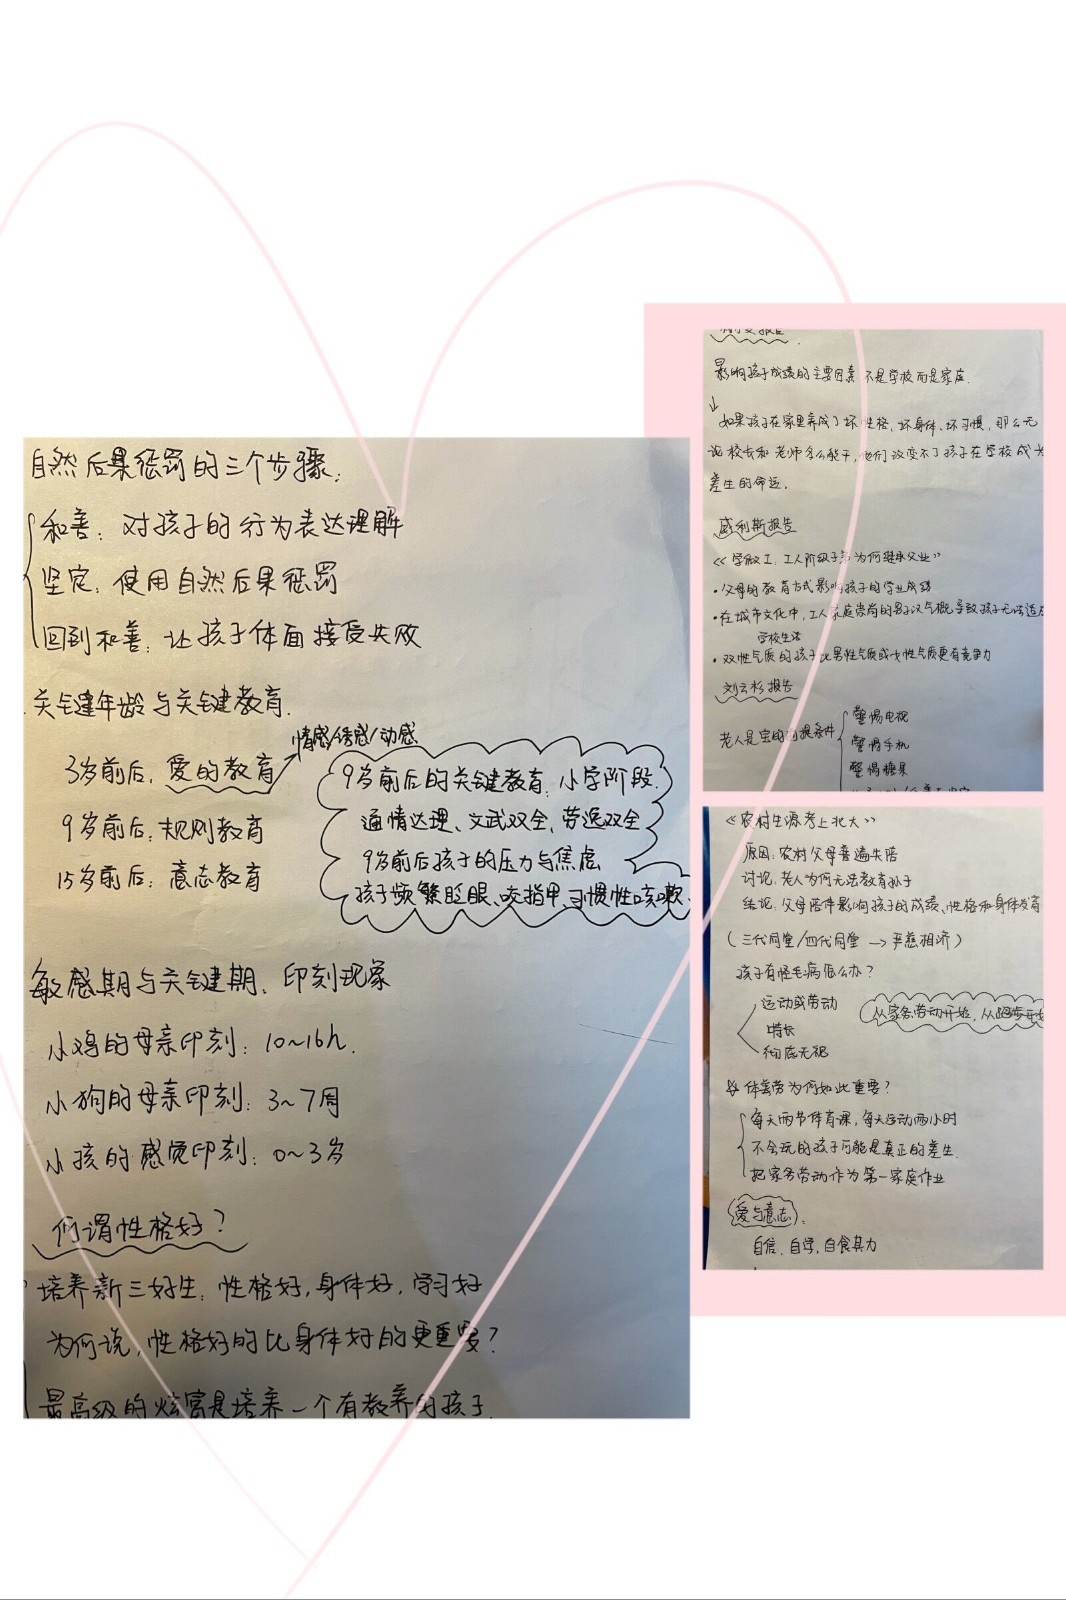 自然后果惩罚的三个步骤:
和善: 对孩子的行为表达理解
坚定: 使用自然后果惩罚
回到和善: 让孩子体面接受失败
关键年龄与关键教育.
情感/诱惑/动感
3岁前后: 爱的教育
9岁前后: 规则教育
15岁前后: 意志教育
9岁前后的关键教育: 小学阶段.
通情达理、文武双全、劳逸双全
9岁前后孩子的压力与焦虑
孩子频繁眨眼、咬指甲、习惯性咳嗽.
敏感期与关键期、印刻现象
小鸡的母亲印刻: 10~16h.
小狗的母亲印刻: 3~7周
小孩的感觉印刻: 0~3岁
何谓性格好?
培养新三好生: 性格好, 身体好, 学习好
为何说, 性格好的比身体好的更重要?
最高级的炫富是培养一个有教养的孩子.
报告
影响孩子成绩的主要因素不是学校而是家庭.
↓
如果孩子在家里养成了坏性格、坏身体、坏习惯, 那么无
论校长和老师多么能干, 他们改变不了孩子在学校成为
差生的命运.
威利斯报告
《学做工: 工人阶级子弟为何继承父业》
·父母的教育方式影响孩子的学业成绩
·在城市文化中, 工人家庭崇尚的男子汉气概导致孩子无法适应
学校生活
·双性气质的孩子比男性气质或女性气质更有竞争力
刘云杉报告
老人是宝的前提条件
警惕电视
警惕手机
警惕糖果
《农村生源考上北大》
原因: 农村父母普遍失陪
讨论: 老人为何无法教育孙子
结论: 父母陪伴影响孩子的成绩、性格和身体发育
(三代同堂/四代同堂 → 严慈相济)
孩子有怪毛病怎么办?
运动或劳动
特长
彻底无视
从家务劳动开始, 从跑步开始
体育劳为何如此重要?
每天两节体育课, 每天运动两小时
不会玩的孩子可能是真正的差生.
把家务劳动作为第一家庭作业
爱与意志:
自信、自学、自食其力